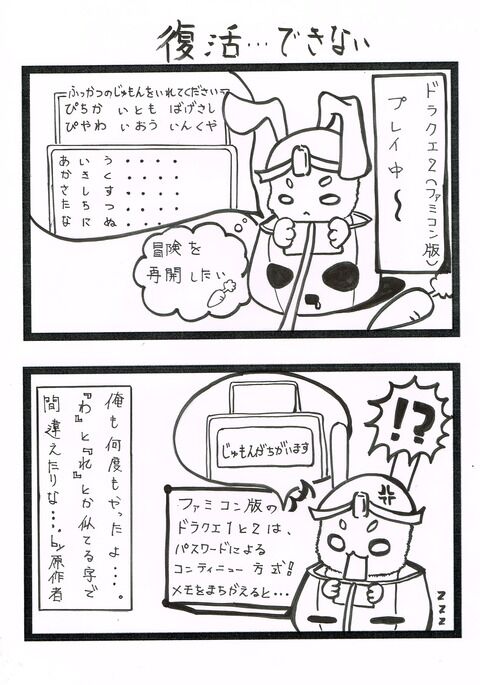 復活…できない
ドラクエ2(ファミコン版)
プレイ中〜
ふっかつのじゅもんをいれてください
ぴちか いとも ばげさし
びやわ いおう いんくや
あ い う・・・・
か き く・・・・
さ し す・・・・
た ち つ・・・・
な に ぬ・・・・
冒険を
再開したい
!?
じゅもんがちがいます
ファミコン版の
ドラクエ1と2は、
パスワードによる
コンティニュー方式!
メモをまちがえると…
俺も何度もやったよ…。
『わ』と『れ』とか似てる字で
間違えたりな…。by原作者
ZZZ